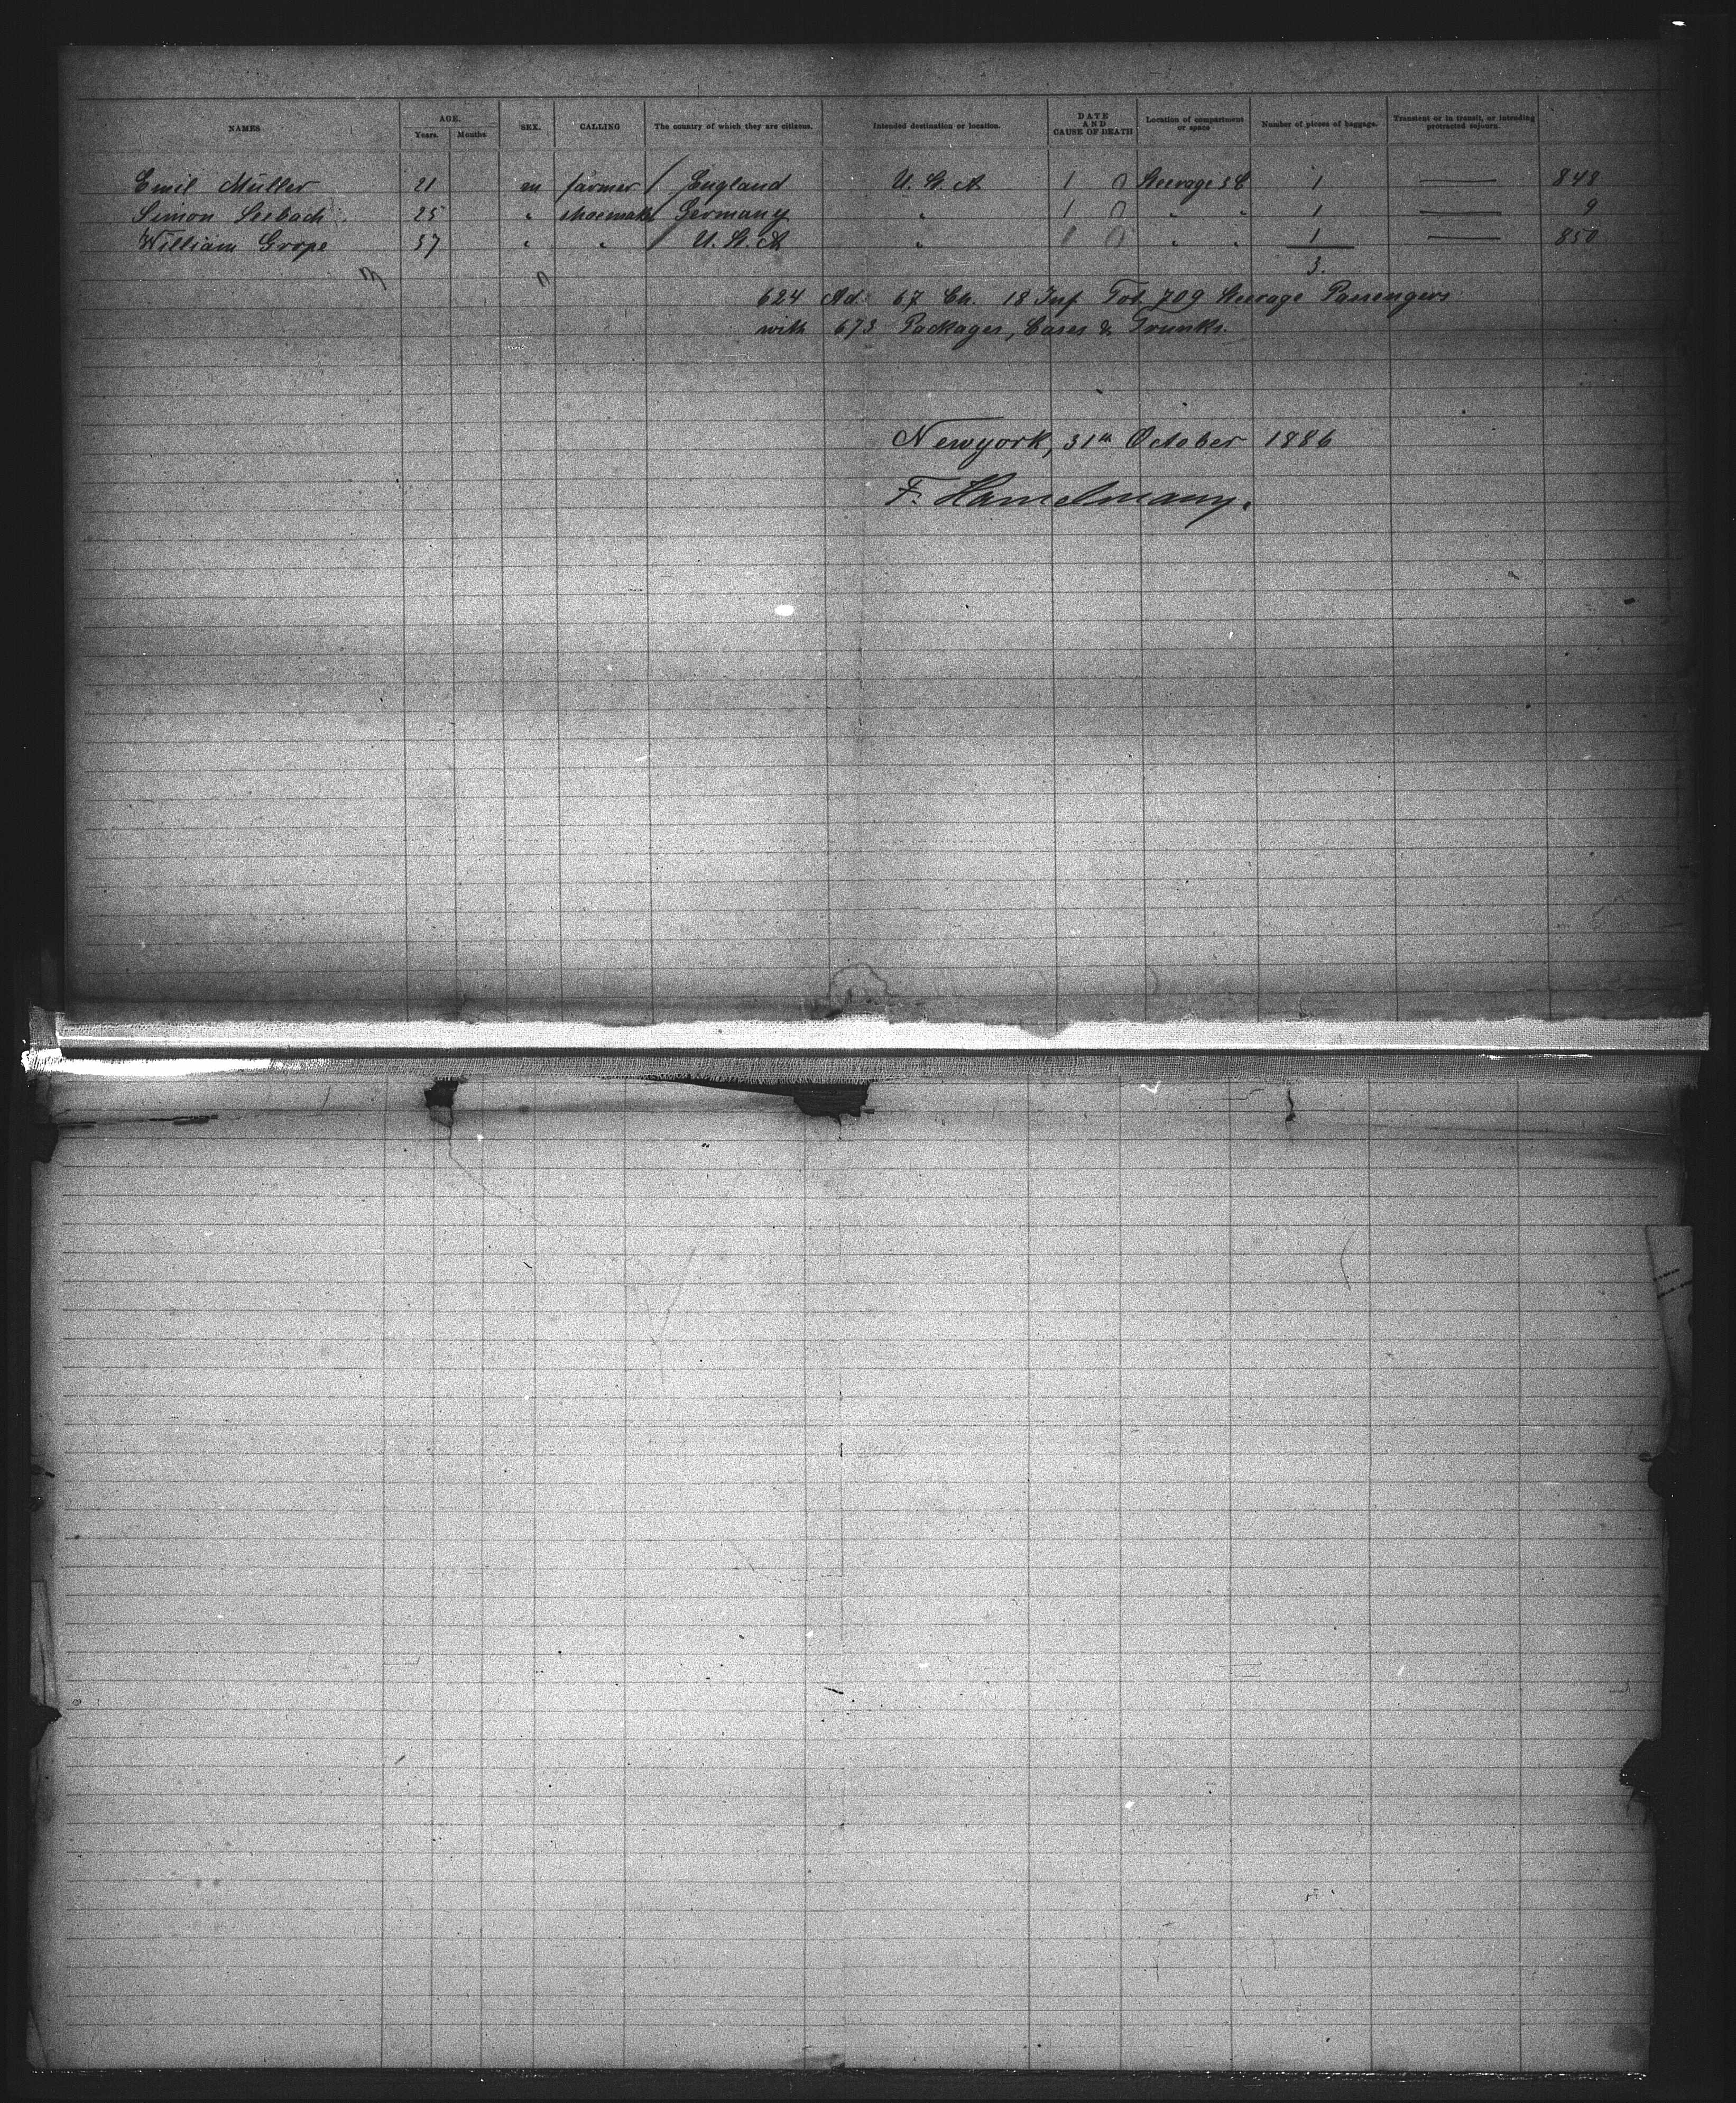 NAMES AGE. SEX. CALLING The country of which they are citizens. Intended destination or location. DATE AND CAUSE OF DEATH Location of compartment or space Number of pieces of baggage. Transient or in transit, or intending protracted sojourn.
Years. Months
Emil Müller 21 m farmer / England U. S. A 1 0 Steerage 3 C 1 — 848
Simon Seebach 25 " shoemak / Germany " 1 0 " " 1 — 9
William Grope 37 " " / U. S. A " 1 0 " " 1 — 850
3.
624 Ad. 67 Ch. 18 Inf Tot. 709 Steerage Passengers
with 673 Packages, Cases & Trunks.
Newyork, 31th October 1886
F. Hamelmann.